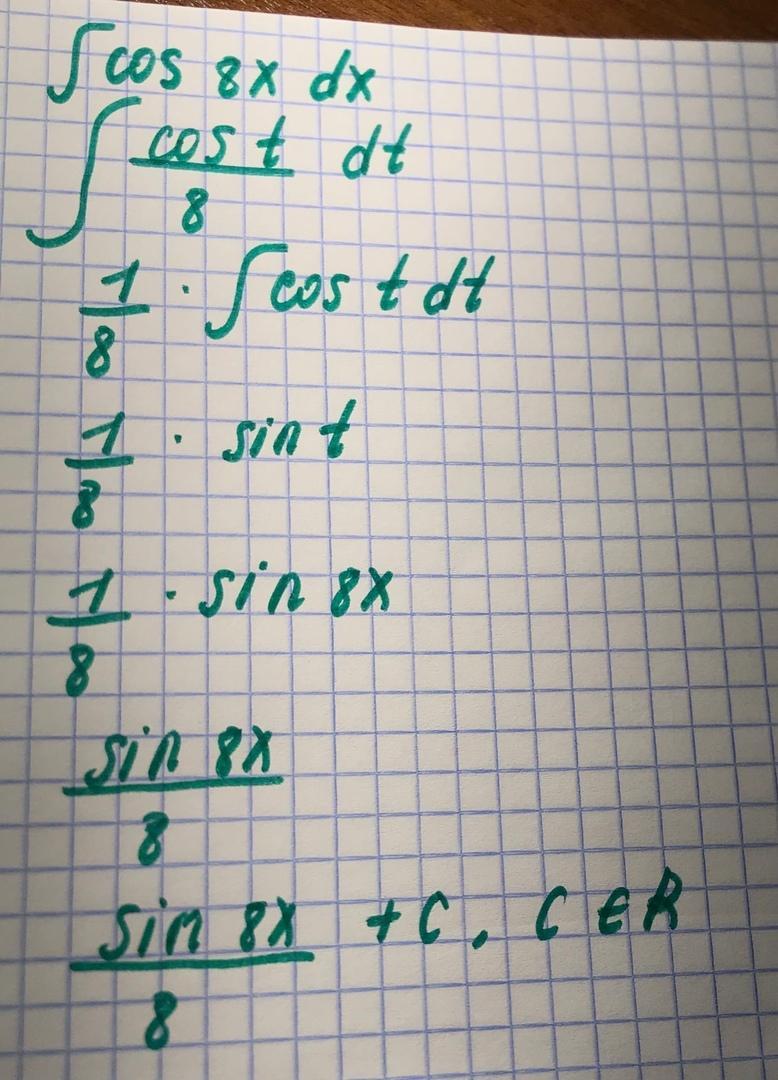 ∫ cos 8x dx
∫ cos t / 8 dt
1/8 · ∫ cos t dt
1/8 · sin t
1/8 · sin 8x
sin 8x / 8
sin 8x / 8 + C, C ∈ R